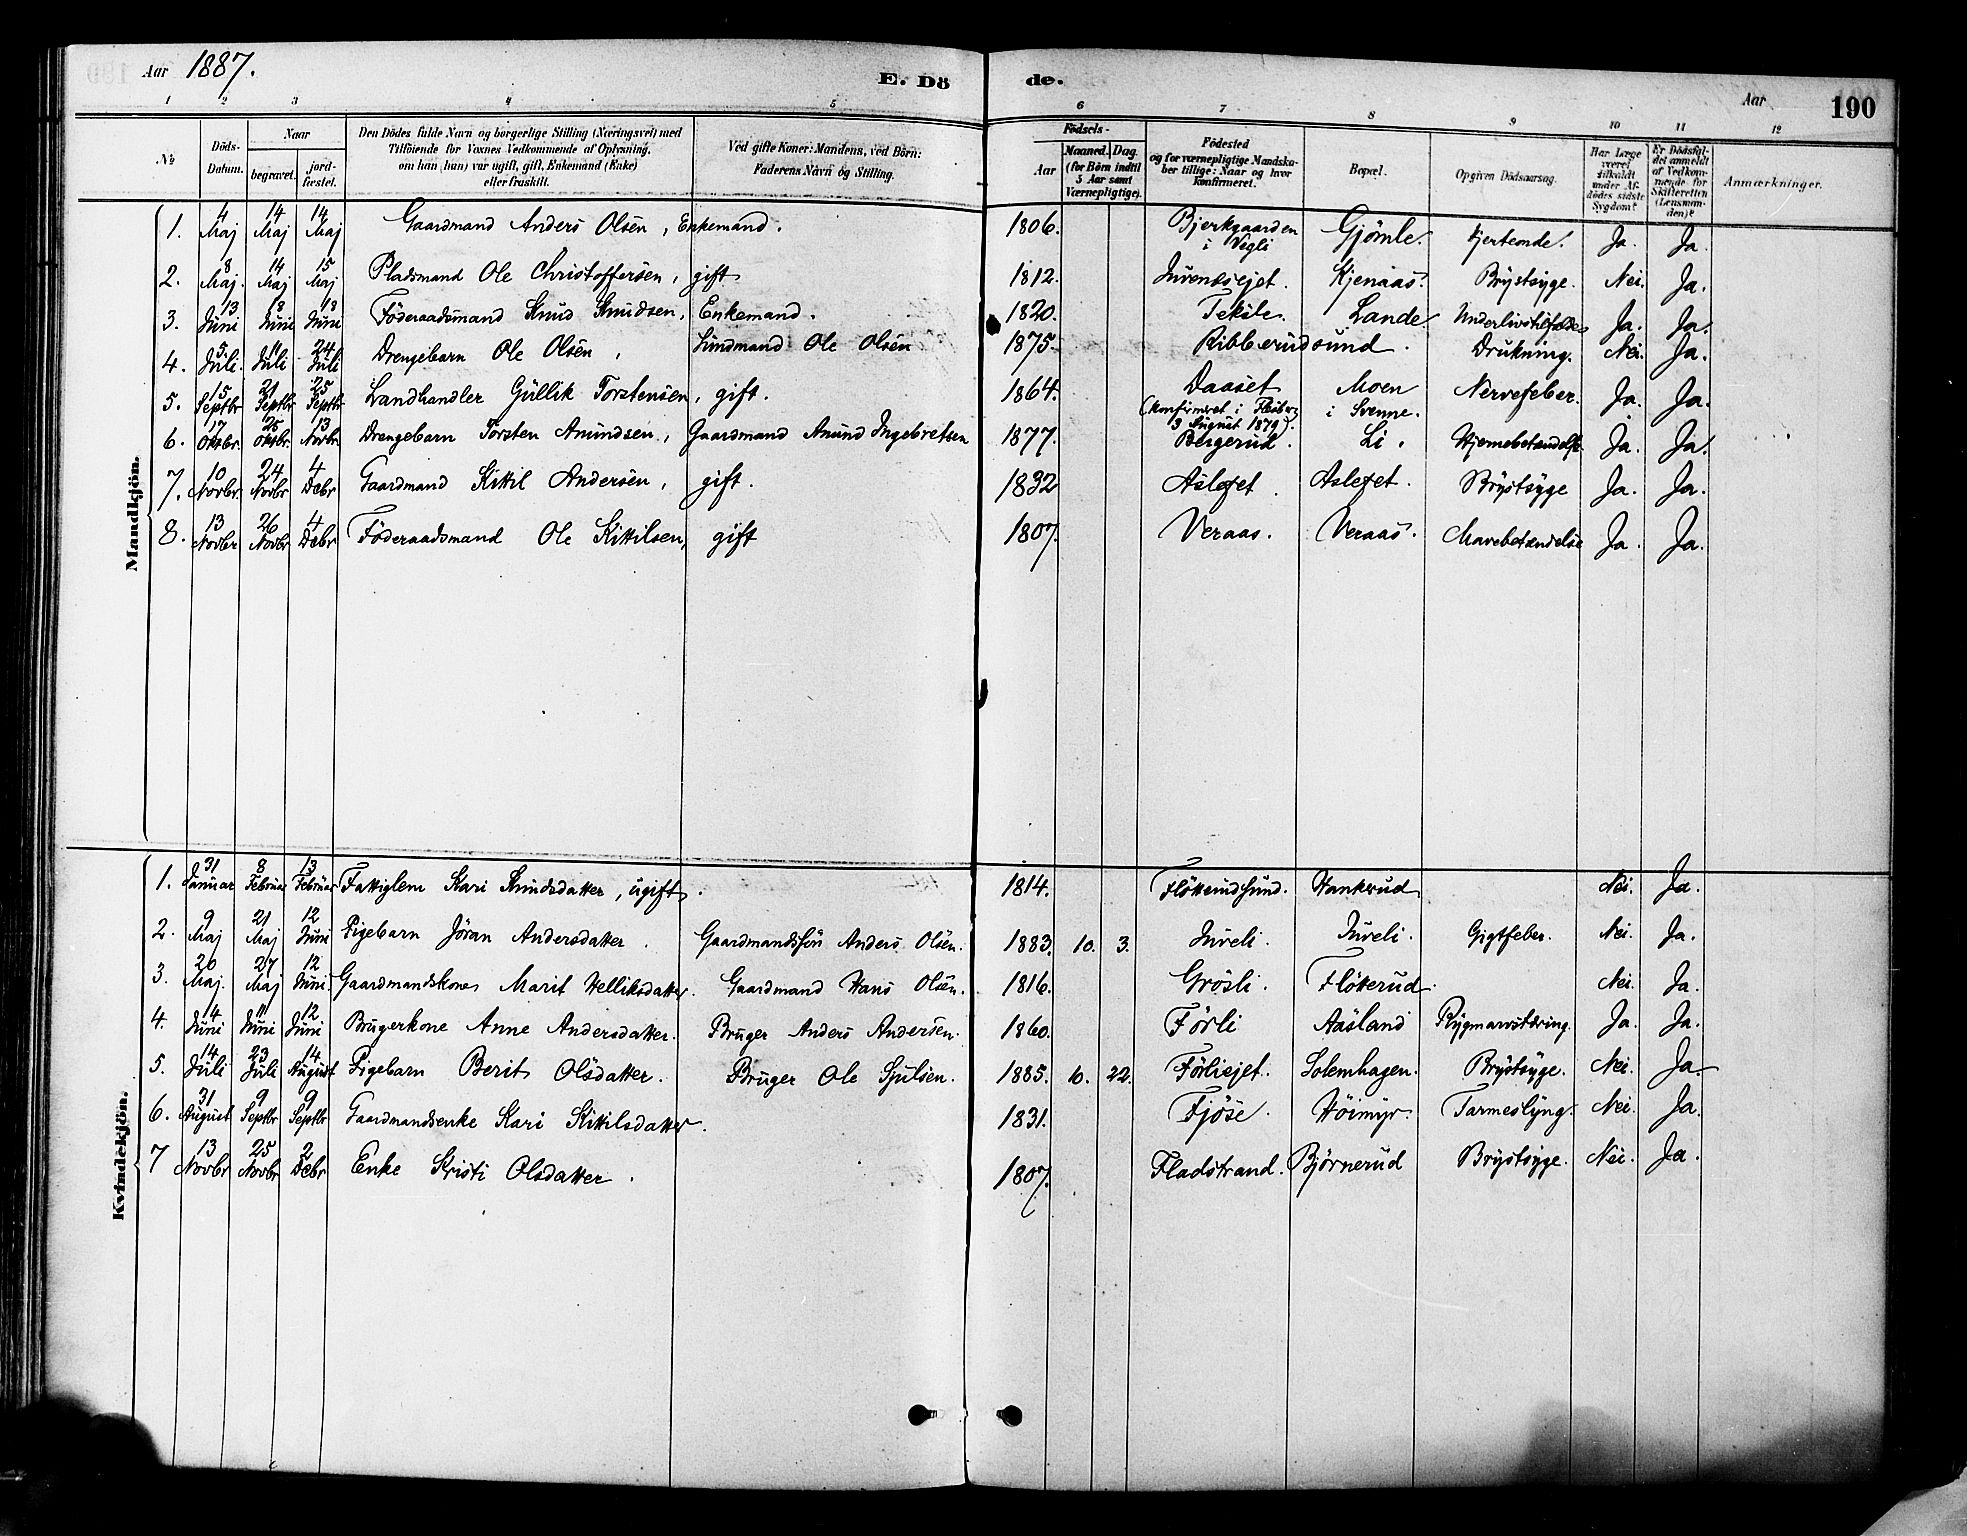 Aar 1887.
E. Dö de.
Aar 190
1 2 3 4 5 6 7 8 9 10 11 12
No
Döds-Datum.
Naar
begravet.
jord-fæstet.
Den Dödes fulde Navn og borgerlige Stilling (Næringsvei) med
Tilföiende for Voxnes Vedkommende af Oplysning,
om han (hun) var ugift, gift, Enkemand (Enke)
eller fraskilt.
Ved gifte Koner: Mandens, ved Börn:
Faderens Navn og Stilling.
Födsels-
Aar
Maaned. Dag.
(for Börn indtil
5 Aar samt
Værnepligtige).
Födested
og for værnepligtige Mandska-
ber tillige: Naar og hvor
konfirmeret.
Bopæl.
Opgiven Dödsaarsag.
Har Læge
været
tilkaldt
under Af-
dödes sidste
Sygdom?
Er Dödsfal-
det anmeldt
af Vedkom-
mende for
Skifteretten
(Lensman-
den)?
Anmærkninger.
Mandkjön.
1. 4 Maj 14 Maj 14 Maj Gaardmand Anders Olsen, Enkemand. 1806. Bjerkgaarden i Vegli Gjömle. Hjerteonde. Ja. Ja.
2. 8 Maj. 14 Maj 15 Maj Pladsmand Ole Christoffersen, gift 1812. Juvenesejet. Kjenaas. Brystsyge. Nei. Ja.
3. 13 Juni 18 Juni 18 Juni Föderaadsmand Knud Knudsen, Enkemand. 1820. Teksle. Lande. Underlivstilfælde Ja. Ja.
4. 5. Juli. 11 Juli 24 Juli Drengebarn Ole Olsen, Sundmand Ole Olsen 1875. Ribberudsund. Drukning. Nei. Ja.
5. 15 Septbr 21 Septbr 25 Septbr Landhandler Gullik Torstensen, gift. 1864. Daaset (konfirmeret i Flesberg 3 August 1879). Moen i Svenne. Nervefeber. Ja. Ja.
6. 17 Oktbr. 25 Oktbr. 13 Novbr. Drengebarn Torsten Anundsen, Gaardmand Anund Ingebretsen 1877. Bergerud. Li. Hjernebetændelse Ja. Ja.
7. 10 Novbr. 24 Novbr 4 Debr Gaardmand Kittil Andersen, gift. 1832 Aslefet. Aslefet. Brystsyge Ja. Ja.
8. 13 Novbr 26 Novbr 4 Debr Föderaadsmand Ole Kittilsen, gift 1807. Veraas. Veraas. Mavebetændelse Ja. Ja.
Kvindekjön.
1. 31 Januar 8 Februar 13 Februar Fattiglem Kari Knudsdatter, ugift. 1814. Flötterudsund. Hankerud Nei. Ja.
2. 9 Maj 21 Maj 12 Juni Pigebarn Jöran Andersdatter. Gaardmandssön Anders Olsen. 1883. 10. 3. Juveli. Juveli. Gigtfeber. Nei. Ja.
3. 20 Maj. 27 Maj 12 Juni. Gaardmandskone Marit Helliksdatter. Gaardmand Hans Olsen. 1816. Grösli. Flötterud. Nei. Ja.
4. 4 Juni 11 Juni 12 Juni Brugerkone Anne Andersdatter. Bruger Anders Andersen. 1860. Förli Aasland Rygmarvstæring. Ja. Ja.
5. 14 Juli 23 Juli 14 August Pigebarn Berit Olsdatter. Bruger Ole Sjulsen. 1885. 10. 22. Förliejet. Solemhagen. Brystsyge. Nei. Ja.
6. 31 August 9 Septbr 9 Septbr Gaardmandsenke Kari Kittilsdatter. 1831. Fjöse. Höimyr. Tarmeslyng. Nei. Ja.
7 13 Novbr 25 Novbr 2 Debr Enke Kristi Olsdatter. 1807. Fladstrand. Björnerud Brystsyge. Nei. Ja.